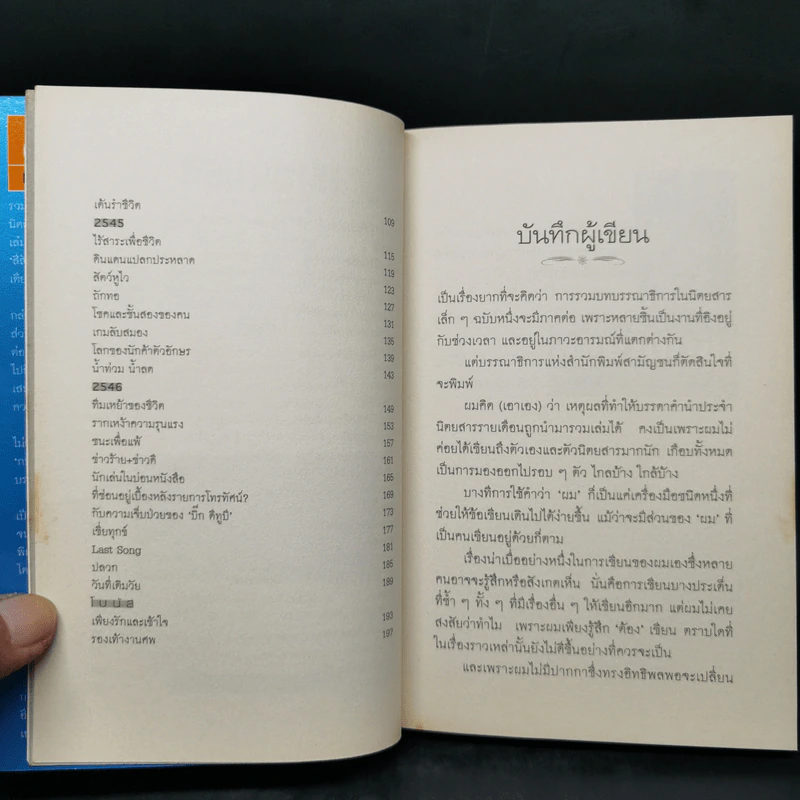 เต้นรำชีวิต
2545 109
ไร้สาระเพื่อชีวิต
ดินแดนแปลกประหลาด 115
สัตว์หูไว 119
ถักทอ 123
โชคและชั้นสองของคน 127
เกมลับสมอง 131
โลกของนักค้าตัวอักษร 135
น้ำท่วม น้ำลด 139
2546 143
ทีมเหย้าของชีวิต 149
รากเหง้าความรุนแรง 153
ชนะเพื่อแพ้ 157
ข่าวร้าย+ข่าวดี 161
นักเล่นในบ่อนหนังสือ 165
ที่ซ่อนอยู่เบื้องหลังรายการโทรทัศน์? 169
กับความเจ็บป่วยของ 'บิ๊ก ดีทูบี' 173
เซี่ยทุกข์ 177
Last Song 181
ปลวก 185
วันที่เดิมวัย 189
โบนัส
เพียงรักและเข้าใจ 193
รองเท้างานศพ 197
บันทึกผู้เขียน
เป็นเรื่องยากที่จะคิดว่า การรวมบทบรรณาธิการในนิตยสาร
เล็ก ๆ ฉบับหนึ่งจะมีภาคต่อ เพราะหลายชิ้นเป็นงานที่อิงอยู่
กับช่วงเวลา และอยู่ในภาวะอารมณ์ที่แตกต่างกัน
แต่บรรณาธิการแห่งสำนักพิมพ์สามัญชนก็ตัดสินใจที่
จะพิมพ์
ผมคิด (เอาเอง) ว่า เหตุผลที่ทำให้บรรดาคำนำประจำ
นิตยสารรายเดือนถูกนำมารวมเล่มได้ คงเป็นเพราะผมไม่
ค่อยได้เขียนถึงตัวเองและตัวนิตยสารมากนัก เกือบทั้งหมด
เป็นการมองออกไปรอบ ๆ ตัว ไกลบ้าง ใกล้บ้าง
บางทีการใช้คำว่า 'ผม' ก็เป็นแค่เครื่องมือชนิดหนึ่งที่
ช่วยให้ข้อเขียนเดินไปได้ง่ายขึ้น แม้ว่าจะมีส่วนของ 'ผม' ที่
เป็นคนเขียนอยู่ด้วยก็ตาม
เรื่องน่าเบื่ออย่างหนึ่งในการเขียนของผมเองซึ่งหลาย
คนอาจจะรู้สึกหรือสังเกตเห็น นั่นคือการเขียนบางประเด็น
ที่ซ้ำ ๆ ทั้ง ๆ ที่มีเรื่องอื่น ๆ ให้เขียนอีกมาก แต่ผมไม่เคย
สงสัยว่าทำไม เพราะผมเพียงรู้สึก 'ต้อง' เขียน ตราบใดที่
ในเรื่องราวเหล่านั้นยังไม่ดีขึ้นอย่างที่ควรจะเป็น
และเพราะผมไม่มีปากกาซึ่งทรงอิทธิพลพอจะเปลี่ยน